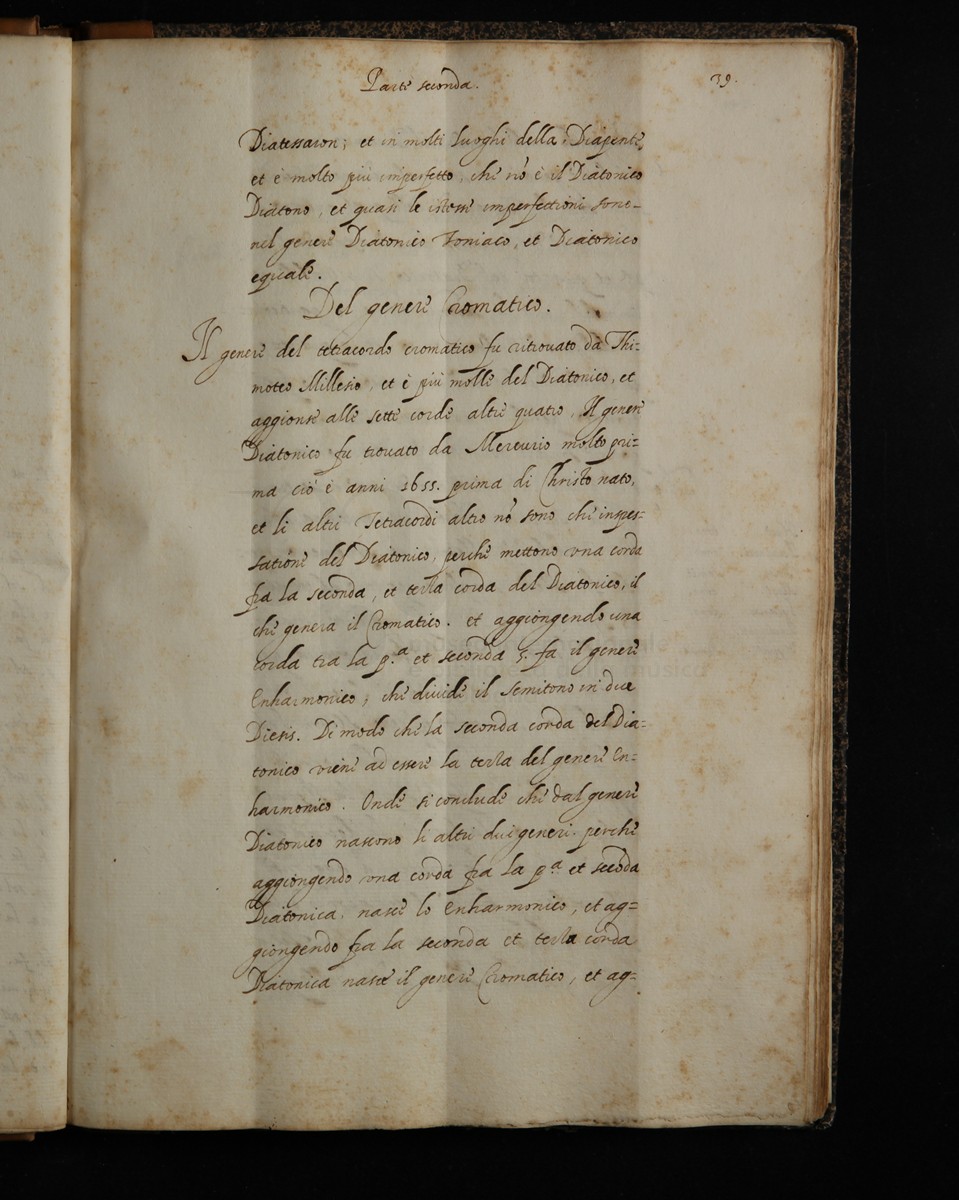 Parte seconda.
39.
Diatessaron; et in molti luoghi della Diapente,
et è molto più imperfetto, che nõ è il Diatonico
Diatono, et quasi le istesse imperfectioni sono
nel genere Diatonico Toniaco, et Diatonico
equale.
Del genere Cromatico.
Il genere del tetracordo cromatico fu ritrouato da Thi=
moteo Millesio, et è più molle del Diatonico, et
aggionse alle sette corde altre quatro. Il genere
Diatonico fu trouato da Mercurio molto pri=
ma ciò è anni 1655. prima di Christo nato,
et li altri Tetracordi altro nõ sono che inspes=
satione del Diatonico, perche mettono una corda
fra la seconda, et terza corda del Diatonico, il
che genera il Cromatico. et aggiongendo una
corda tra la p.ª et seconda si fa il genere
Enharmonico, che diuide il semitono in due
Diesis. Di modo che la seconda corda del Dia=
tonico viene ad essere la terza del genere En=
harmonico. Onde si conclude che dal genere
Diatonico nascono li altri dui generi. perche
aggiongendo una corda fra la p.ª et secõda
Diatonica, nasce lo Enharmonico, et ag=
giongendo fra la seconda et terza corda
Diatonica nasce il genere Cromatico, et ag=